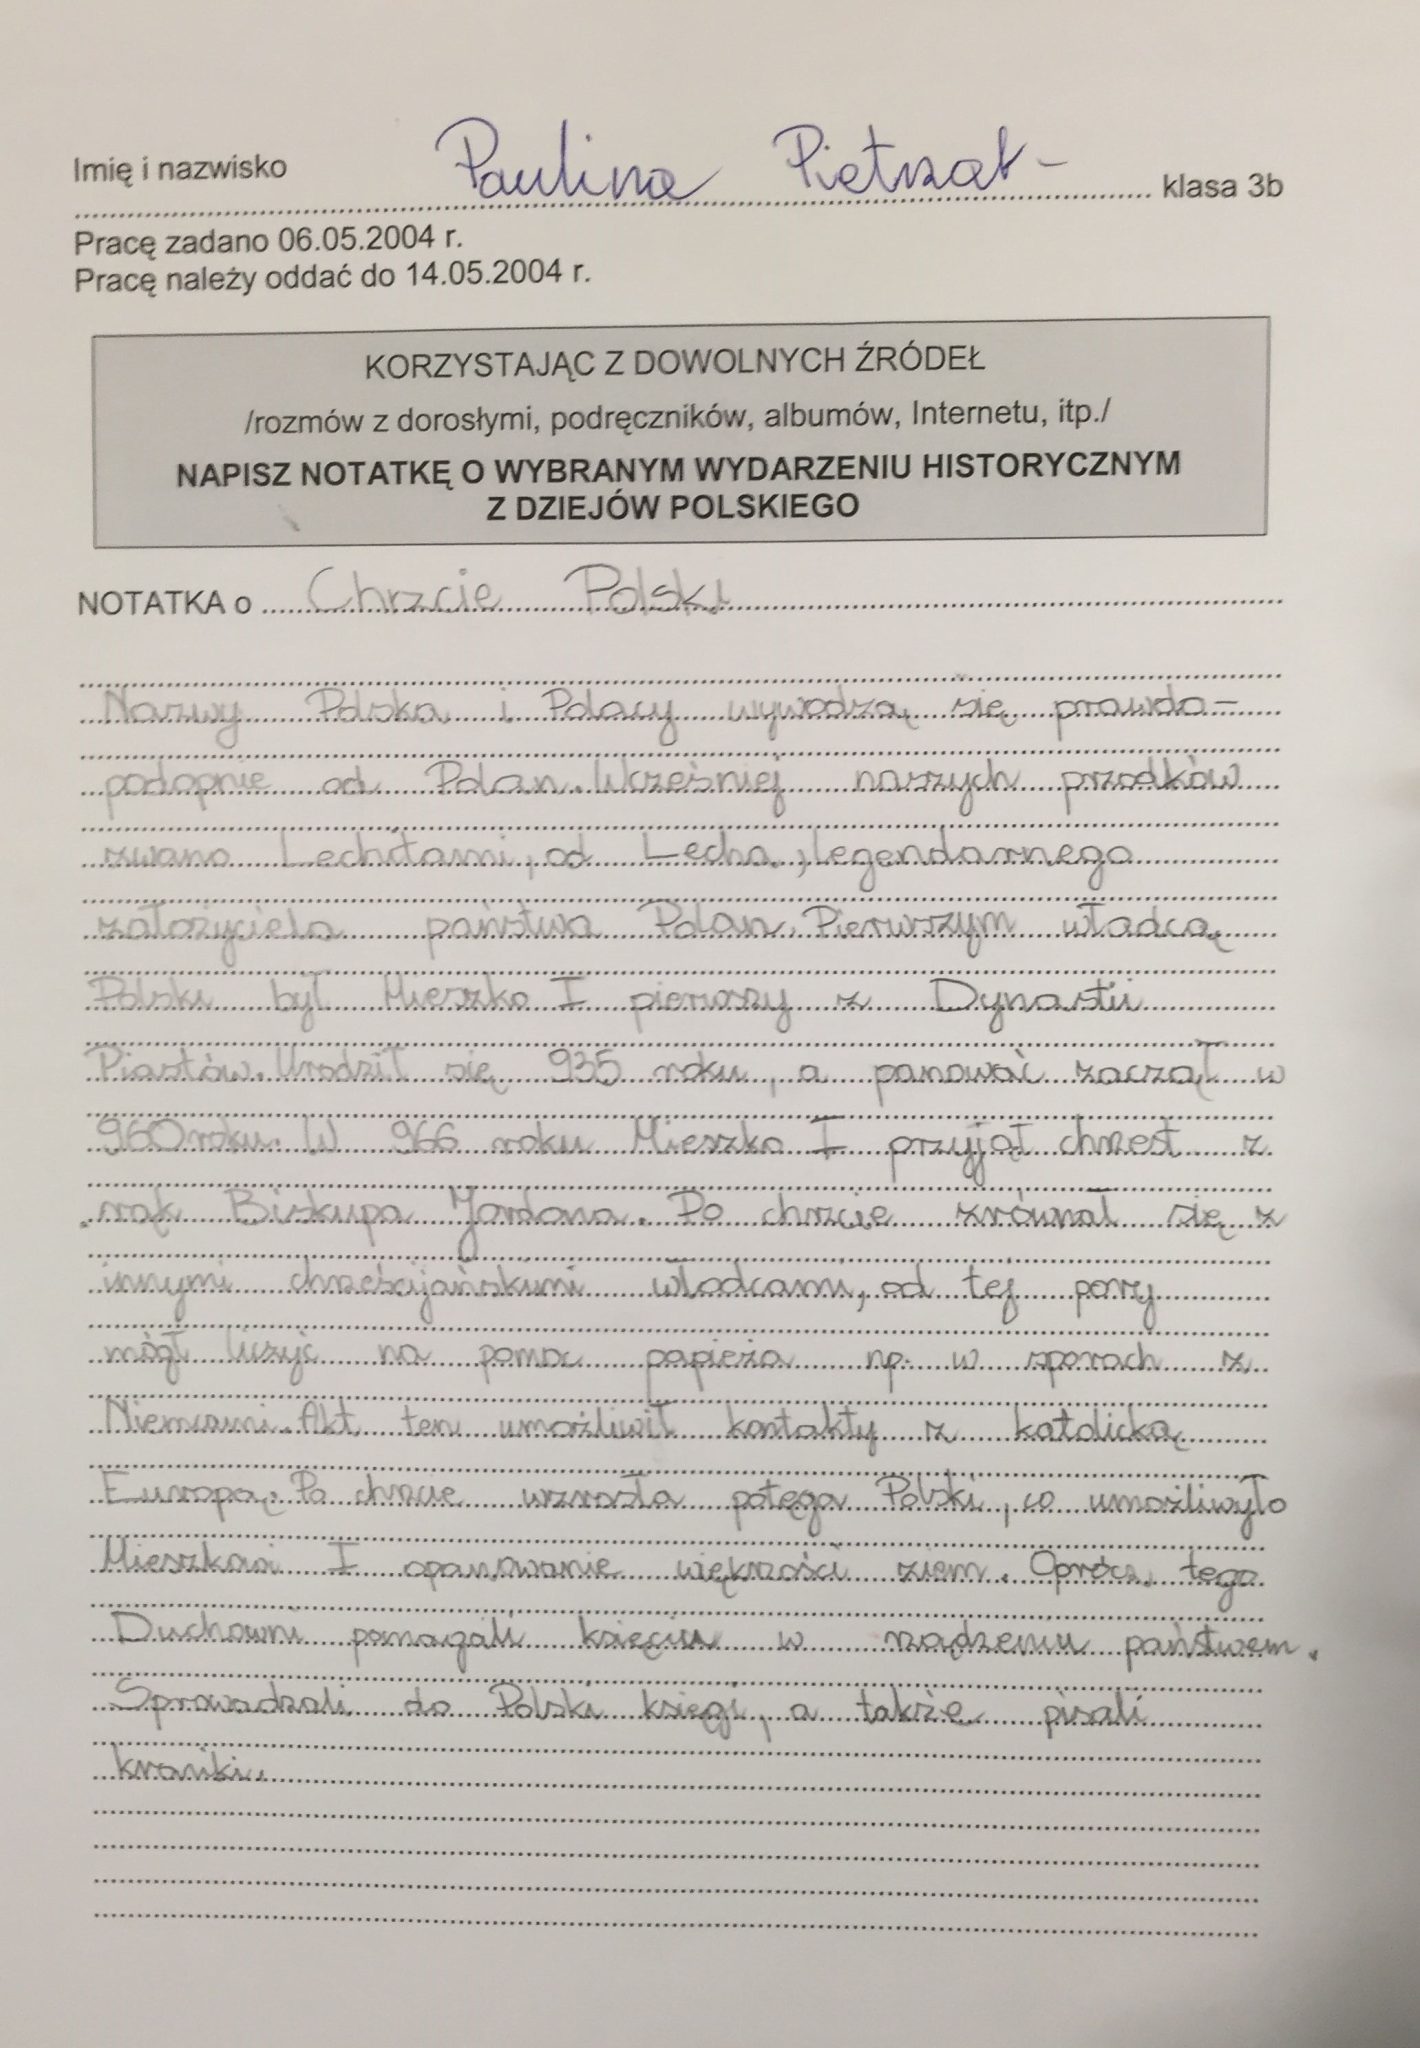 Imię i nazwisko
Paulina Pietrzak klasa 3b
Pracę zadano 06.05.2004 r.
Pracę należy oddać do 14.05.2004 r.
KORZYSTAJĄC Z DOWOLNYCH ŹRÓDEŁ
/rozmów z dorosłymi, podręczników, albumów, Internetu, itp./
NAPISZ NOTATKĘ O WYBRANYM WYDARZENIU HISTORYCZNYM
Z DZIEJÓW POLSKIEGO
NOTATKA o Chrzcie Polski
Nazwy Polska i Polacy wywodzą się prawdo-
podopnie od Polan. Wcześniej naszych przodków
zwano Lechitami, od Lecha, legendarnego
założyciela państwa Polan. Pierwszym władcą
Polski był Mieszko I pierwszy z Dynastii
Piastów. Urodził się 935 roku, a panować zaczął w
960 roku. W 966 roku Mieszko I przyjął chrzest z
rąk Biskupa Jordana. Po chrzcie zrównał się z
innymi chrześcijańskimi władcami, od tej pory
mógł liczyć na pomoc papieża np. w sporach z
Niemcami. Akt ten umożliwił kontakty z katolicką
Europą. Po chrzcie wzrosła potęga Polski, co umożliwyło
Mieszkowi I opanowanie większości ziem. Oprócz tego
Duchowni pomagali księciu w rządzeniu państwem.
Sprowadzali do Polski księgi, a także pisali
kroniki.